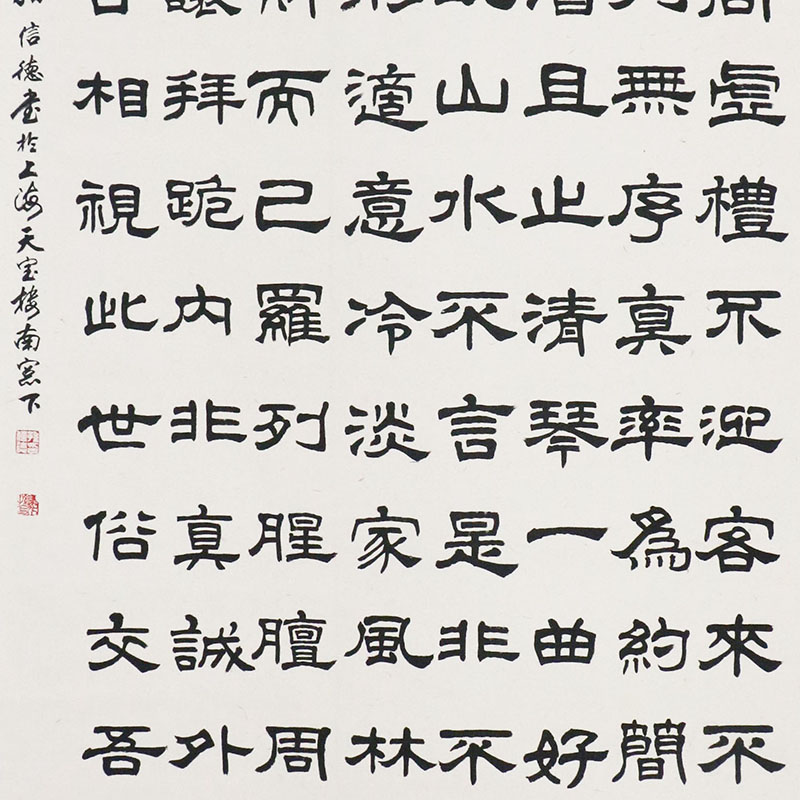 虛禮不迎客來不
無序真率爲約簡
且止清琴一曲好
山水不言是非不
適意冷淡家風林
而已羅列腥膻周
讓拜跪内非真誠外
相視此世俗交吾
信德书於上海天宝楼南窓下